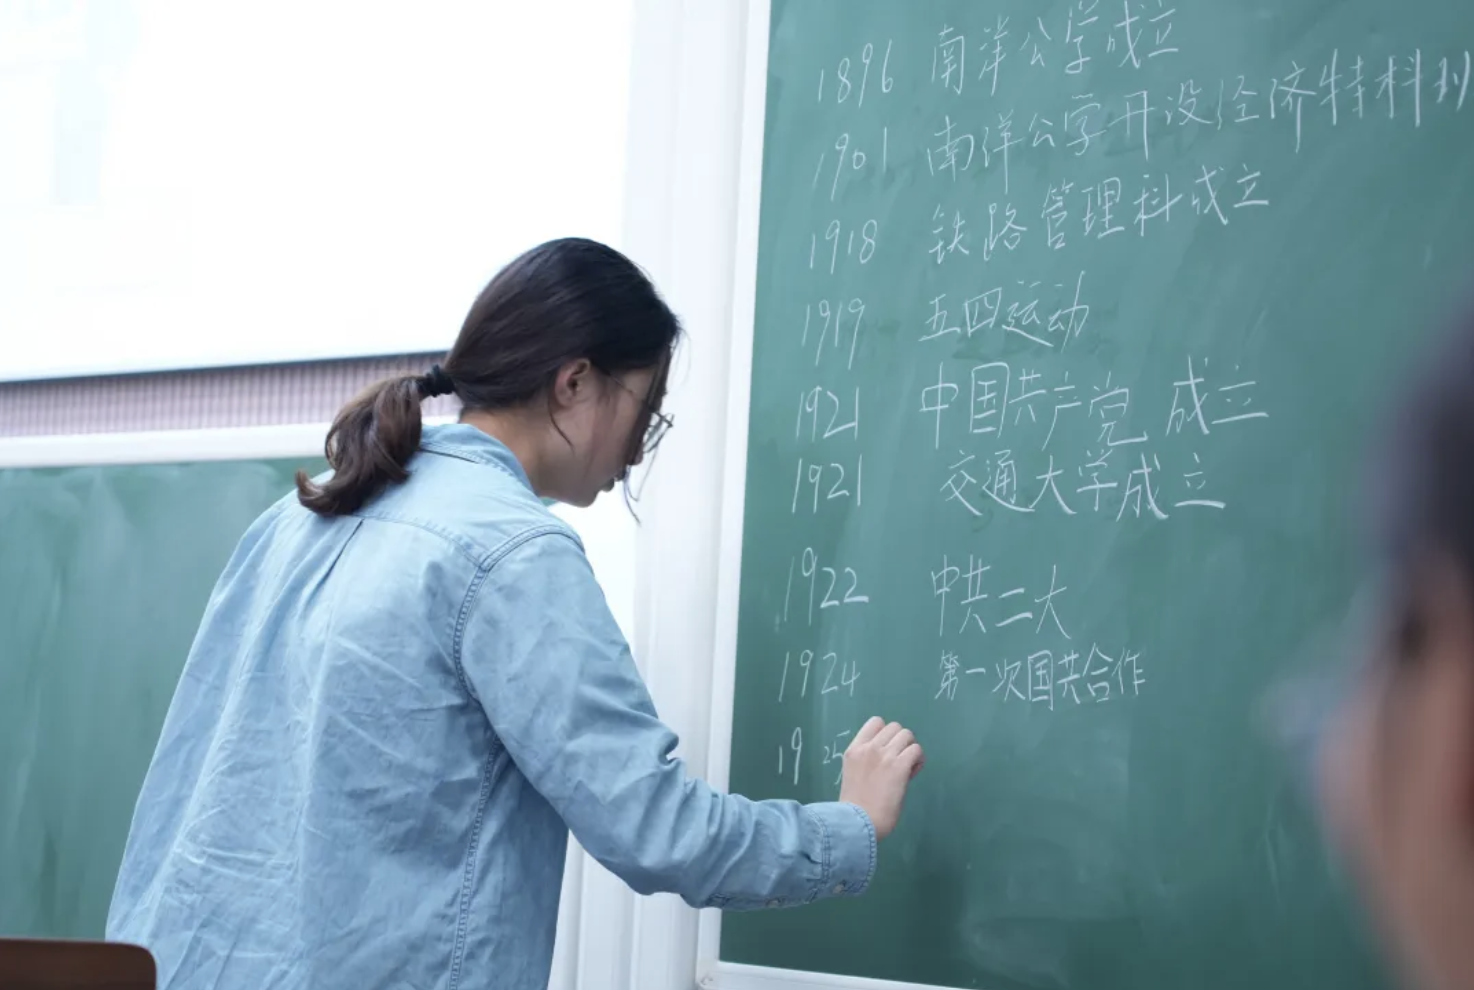 1896 南洋公学成立
1901 南洋公学开设经济特科班
1918 铁路管理科成立
1919 五四运动
1921 中国共产党 成立
1921 交通大学成立
1922 中共二大
1924 第一次国共合作
1925